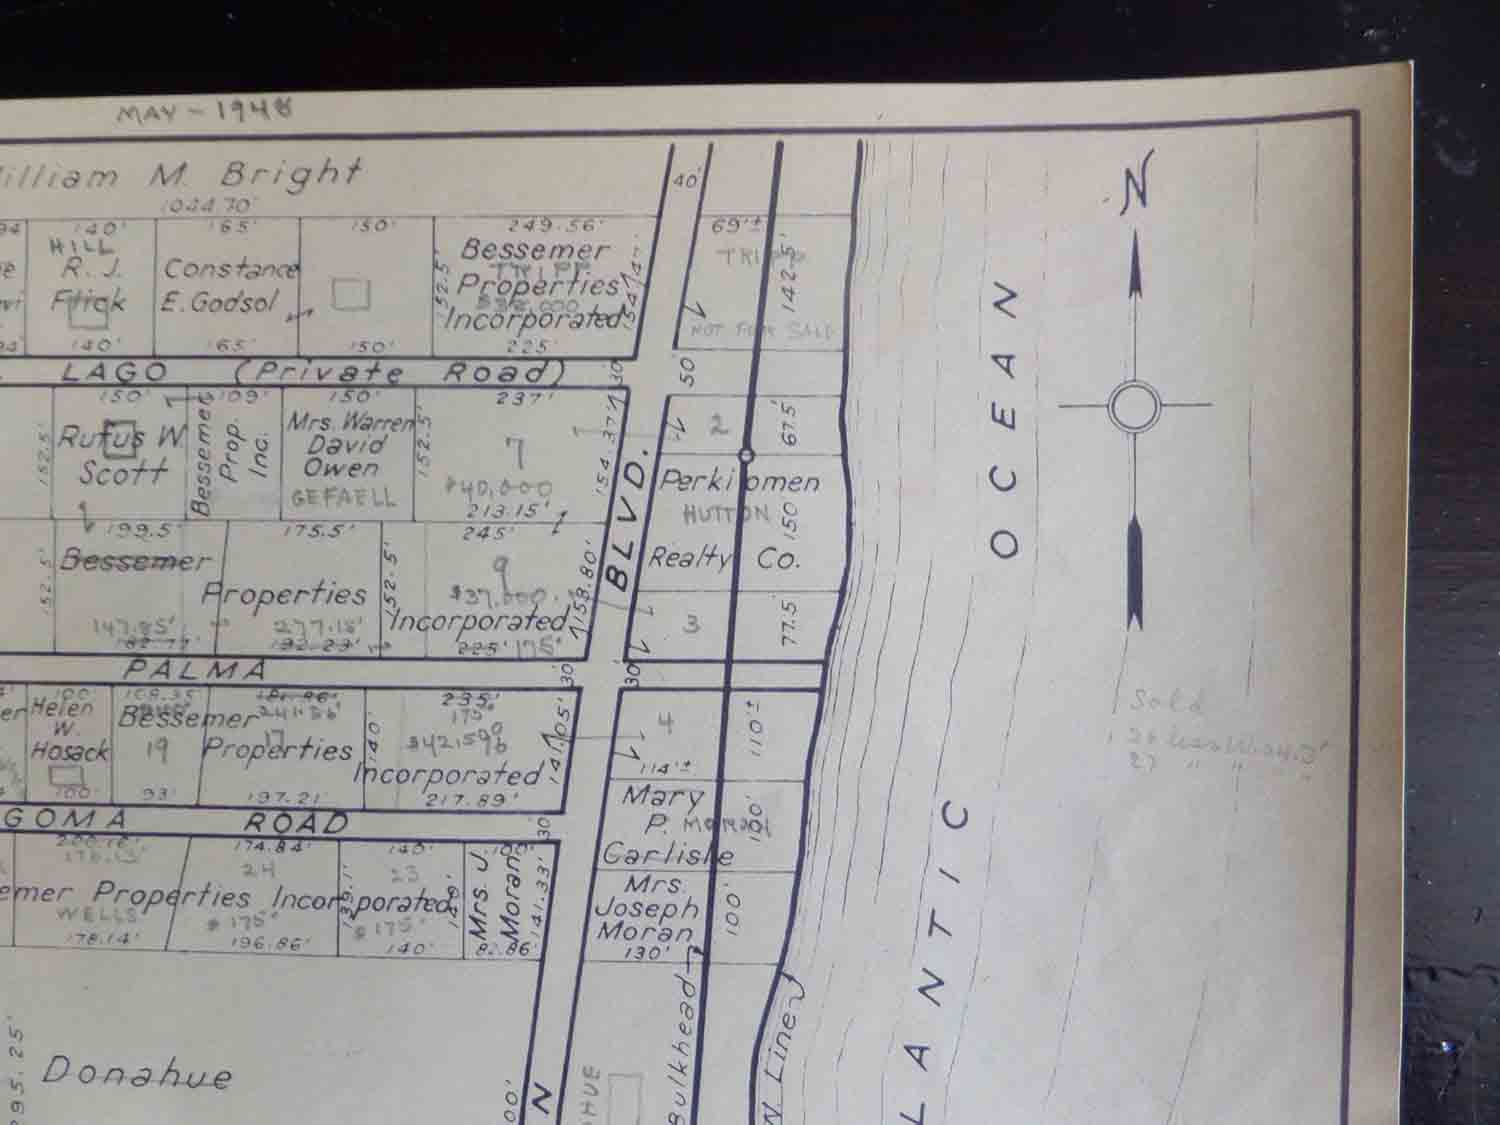 MAY - 1948
William M. Bright
1044.70'
140' 165' 150' 249.56' 40' 69'±
HILL
R. J.
Frick
Constance
E. Godsol
Bessemer
TRIPP
Properties
Incorporated
152.5'
TRIPP
142.5'
NOT FOR SALE
140' 165' 150' 225'
LAGO (Private Road)
30' 50'
150' 109' 150' 237'
Rufus W
Scott
152.5'
Bessemer
Prop.
Inc.
Mrs. Warren
David
Owen
GEFAELL
152.5'
7
$40,000
213.15'
154.37'
2
67.5'
BLVD.
Perkiomen
HUTTON
Realty Co.
150'
199.5' 175.5' 245'
Bessemer
Properties
Incorporated
152.5' 152.5'
9
$37,000.
158.80'
147.85' 277.15'
192.29' 225' 175'
3
77.5'
PALMA
30' 30'
100' 235'
Helen
W.
Hosack
100'
Bessemer
Properties
Incorporated
19 17
241.36'
175'
140'
141.05'
93' 197.21' 217.89'
4
110'±
114'±
GOMA ROAD
30'
Mary
P. MORAN
Carlisle
100'
174.84' 140' 100'
24 23
Bessemer Properties Incorporated
WELLS
$175' $175'
139.1' 140'
178.14' 196.86' 140' 82.86'
Mrs. J.
Moran
141.33'
Mrs.
Joseph
Moran
130'
100'
Bulkhead
W. Line
Donahue
95.25'
00'
N
HUE
N
OCEAN
LANTIC
Sold
27 " " "